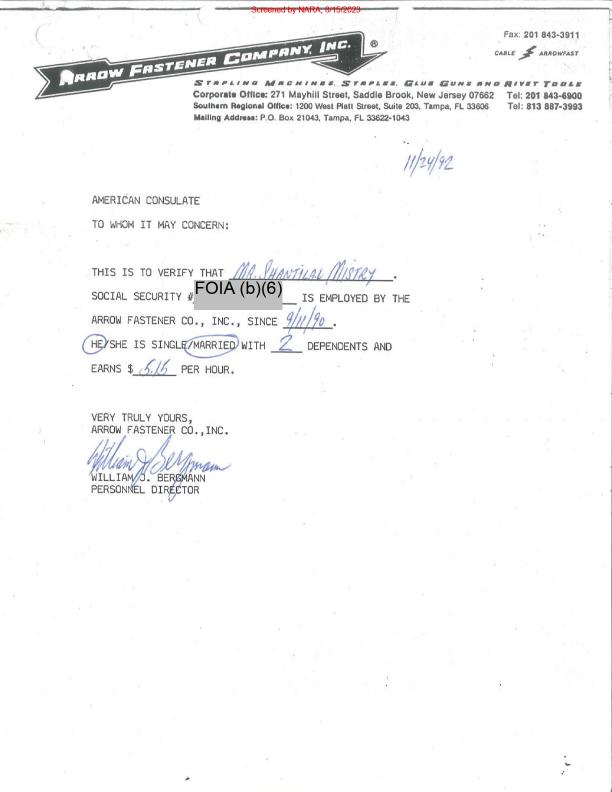 Screened by NARA, 8/15/2023
ARROW FASTENER COMPANY, INC. ®
Fax: 201 843-3911
CABLE ARROWFAST
STAPLING MACHINES, STAPLES, GLUE GUNS AND RIVET TOOLS
Corporate Office: 271 Mayhill Street, Saddle Brook, New Jersey 07662 Tel: 201 843-6900
Southern Regional Office: 1200 West Platt Street, Suite 203, Tampa, FL 33606 Tel: 813 887-3993
Mailing Address: P.O. Box 21043, Tampa, FL 33622-1043
11/24/92
AMERICAN CONSULATE
TO WHOM IT MAY CONCERN:
THIS IS TO VERIFY THAT MR. SHANTILAL MISTRY.
SOCIAL SECURITY # FOIA (b)(6) IS EMPLOYED BY THE
ARROW FASTENER CO., INC., SINCE 9/11/90.
HE/SHE IS SINGLE/MARRIED WITH 2 DEPENDENTS AND
EARNS $ 5.15 PER HOUR.
VERY TRULY YOURS,
ARROW FASTENER CO.,INC.
William J. Bergmann
WILLIAM J. BERGMANN
PERSONNEL DIRECTOR